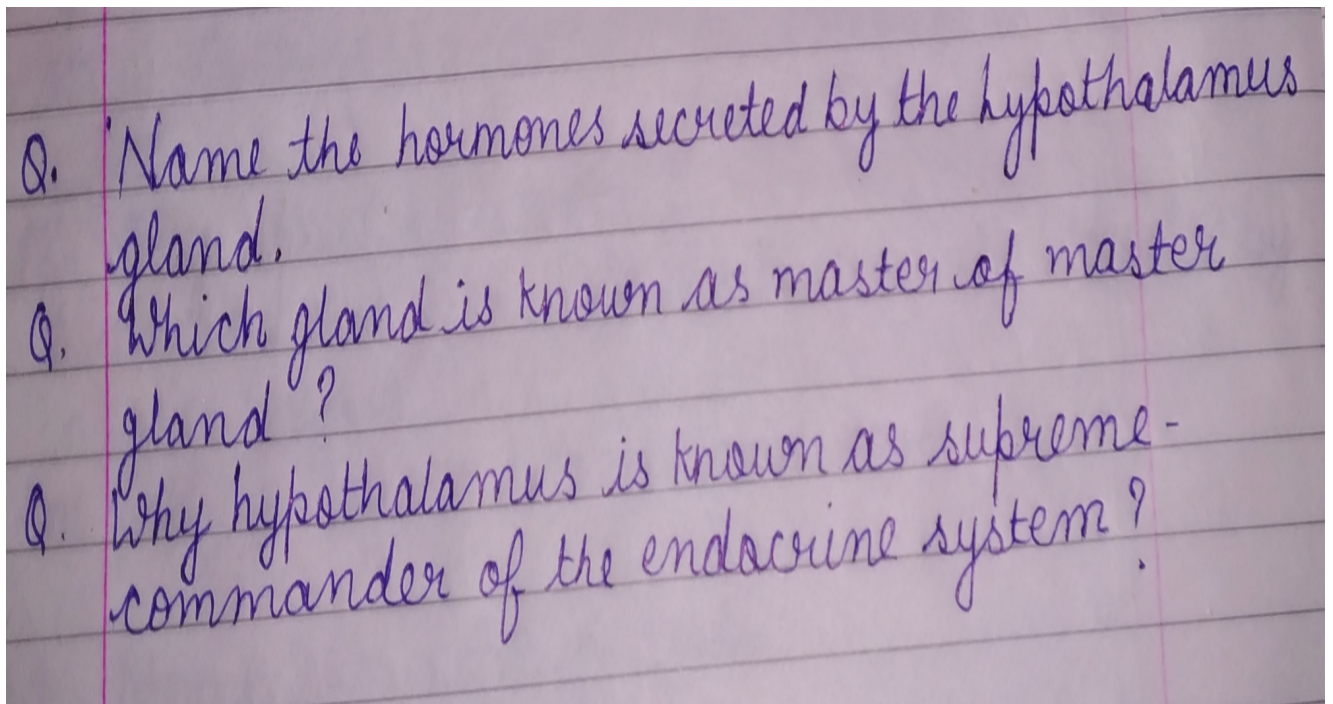 Q. Name the hormones secreted by the hypothalamus
gland.
Q. Which gland is known as master of master
gland ?
Q. Why hypothalamus is known as supreme-
commander of the endocrine system ?